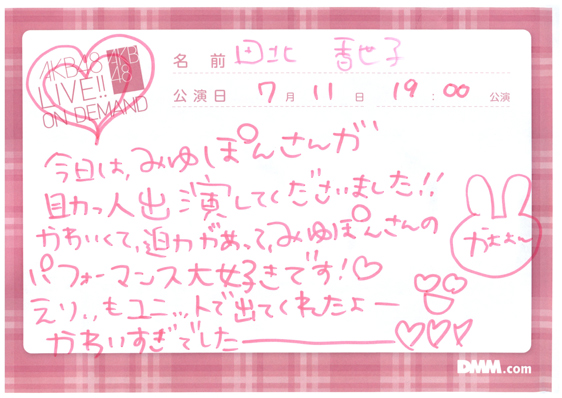 AKB48
LIVE!!
ON DEMAND
AKB
48
名 前 田北 香世子
公演日 7 月 11 日 19 : 00 公演
今日は、みゆぽんさんが
助っ人出演してくださいました!!
かわいくて、迫力があって、みゆぽんさんの
パフォーマンス大好きです!♡
えりぃもユニットで出てくれたよー
かわいすぎでした――♡♡♡
かよよ〜
DMM.com